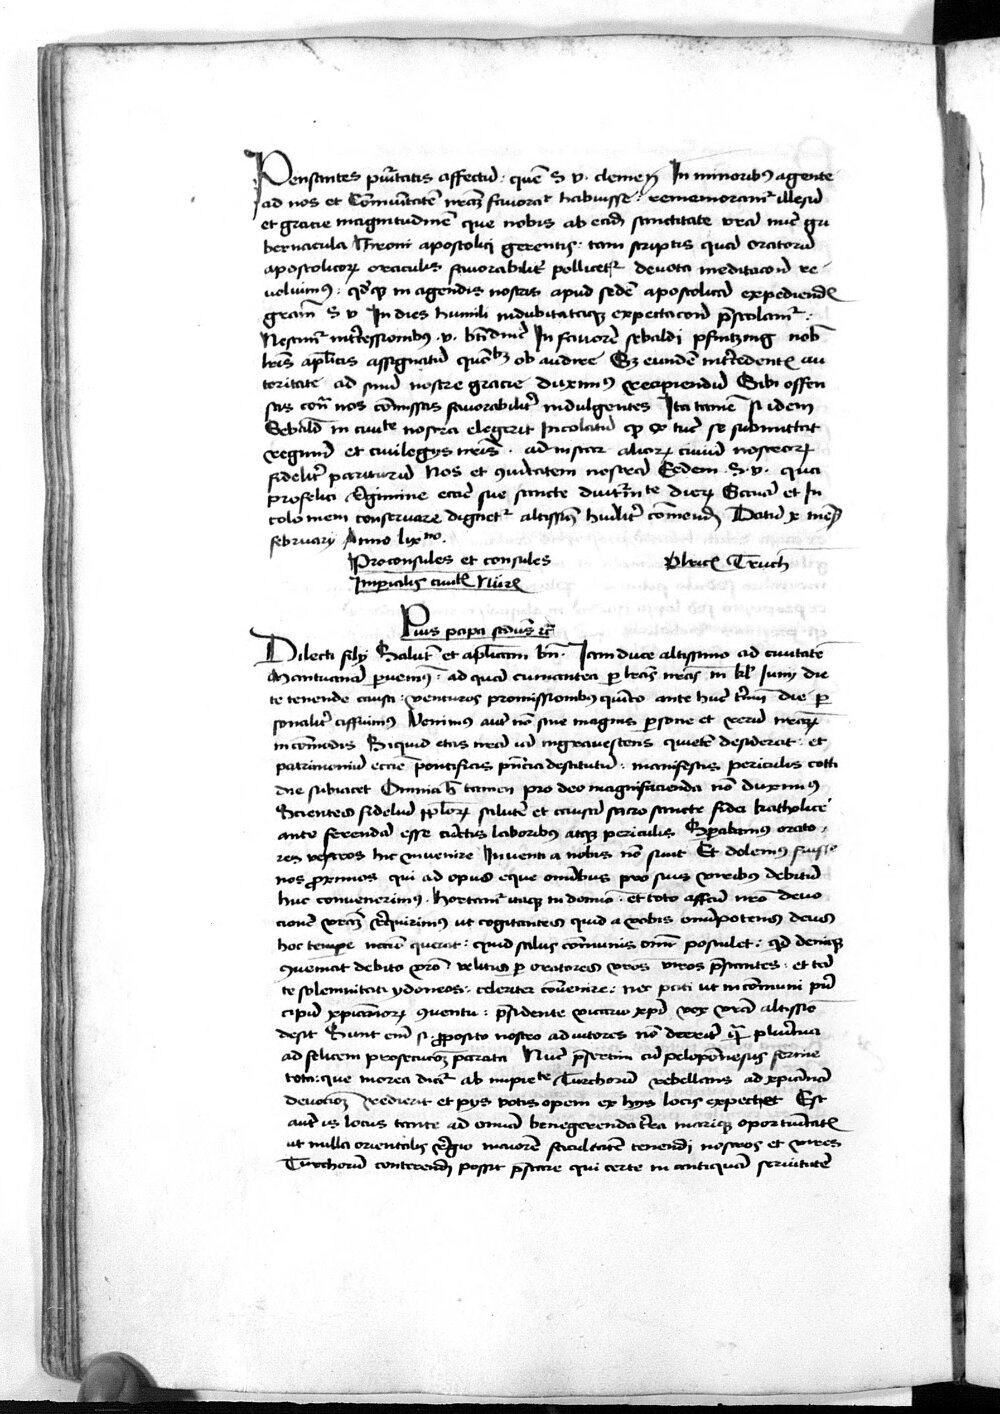 Pensantes puritatis affectum quem S v. clemens In minoribus agente
ad nos et Comunitatem nostram favorat habuisse rememoramur illesum
et gracie magnitudinem que nobis ab eadem sanctitate vestra nunc gu
bernacula throni apostolici gerentis tam scriptis quam oratorum
apostolicorum oraculis favorabiliter pollicetur devota meditacione re
volvimus in agendis nostris apud sedem apostolicam expediendis
graciam S v In dies humili indubitatique expectacione prestolamur
intercessionibus v. In favorem sebaldi pfintzing
litteris apostolicis assignatum ob audire eundem intercedente au
toritate ad sinum nostre gracie duximus recipiendum Sibi offen
sas contra nos comissas favorabiliter indulgentes Ita tamen si idem
Sebaldus in civitate nostra elegerit Incolatum tunc se submittat
regimini et civilegys nostris ad instar aliorum civium nostrorum
fideliter pariturum Nos et civitatem nostram Eedem S. v. qua
pro felici Regimine ecclesie sue sancte dierum Et In
colomem conservare dignetur altissimus humiliter comendamus Datum x mensis
february Anno lix no.
Proconsules et consules Vlricus Truch
Imperialis civitatis Nure
Pius papa secundus etc
Dilecti filij Salutem et apostolicam ben. Iam duce altissimo ad civitatem
Mantuanam pervenimus ad quam per literas nostras in kl Iunij die
te tenende causa venturos promissionibus ante hunc terminum die per
sonaliter affuimus Venimus autem non sine magnis persone et rerum nostrarum
incomodis Siquid etas nostra iam ingravescens quietem desiderat et
patrimonium ecclesie pontificis presencia destitutum manifestis periculis cotti
die subiacet Omnia hec tamen pro deo magnifacienda non duximus
Scientes fidelium populorum salutem et causam sacro sancte fidei katholice
ante ferendam esse cunctis laboribus atque periculis Sperabamus orato
res vestros hic invenire Inventi a nobis non sunt Et dolemus fuisse
nos proximos qui ad opus eque omnibus pro suis viribus debitum
huc convenerimus Hortamur itaque in domino et toto affectu nostro devo
cionem vestram Requirimus ut cogitantes quid a vobis omnipotens deus
hoc tempore querat quid salus comunis omnium postulet quid denique
conveniat debito vestro velitis per oratores vestros viros prestantes et tan
te solemnitati ydoneos celeriter convenire nec pati ut in comuni prin
cipum xpianorum conventu presidente vicario xpi vox vestra altissimo
desit Sunt enim si proposito nostro adiutores non deerunt plurima
ad felicem prosecucionem parata Nunc presertim cum peloponesus ferme
tota que morea dicitur ab impietate Turchorum rebellans ad xpianam
devocionem redierit et pys votis opem ex hys locis expectet Est
autem is locus tante ad omnia bene gerenda terra marique oportunitatis
ut nulla orientalis Regio maiorem facultatem tenendi nostros et vires
Turchorum conterendi possit prestare qui certe in antiquam servitutem